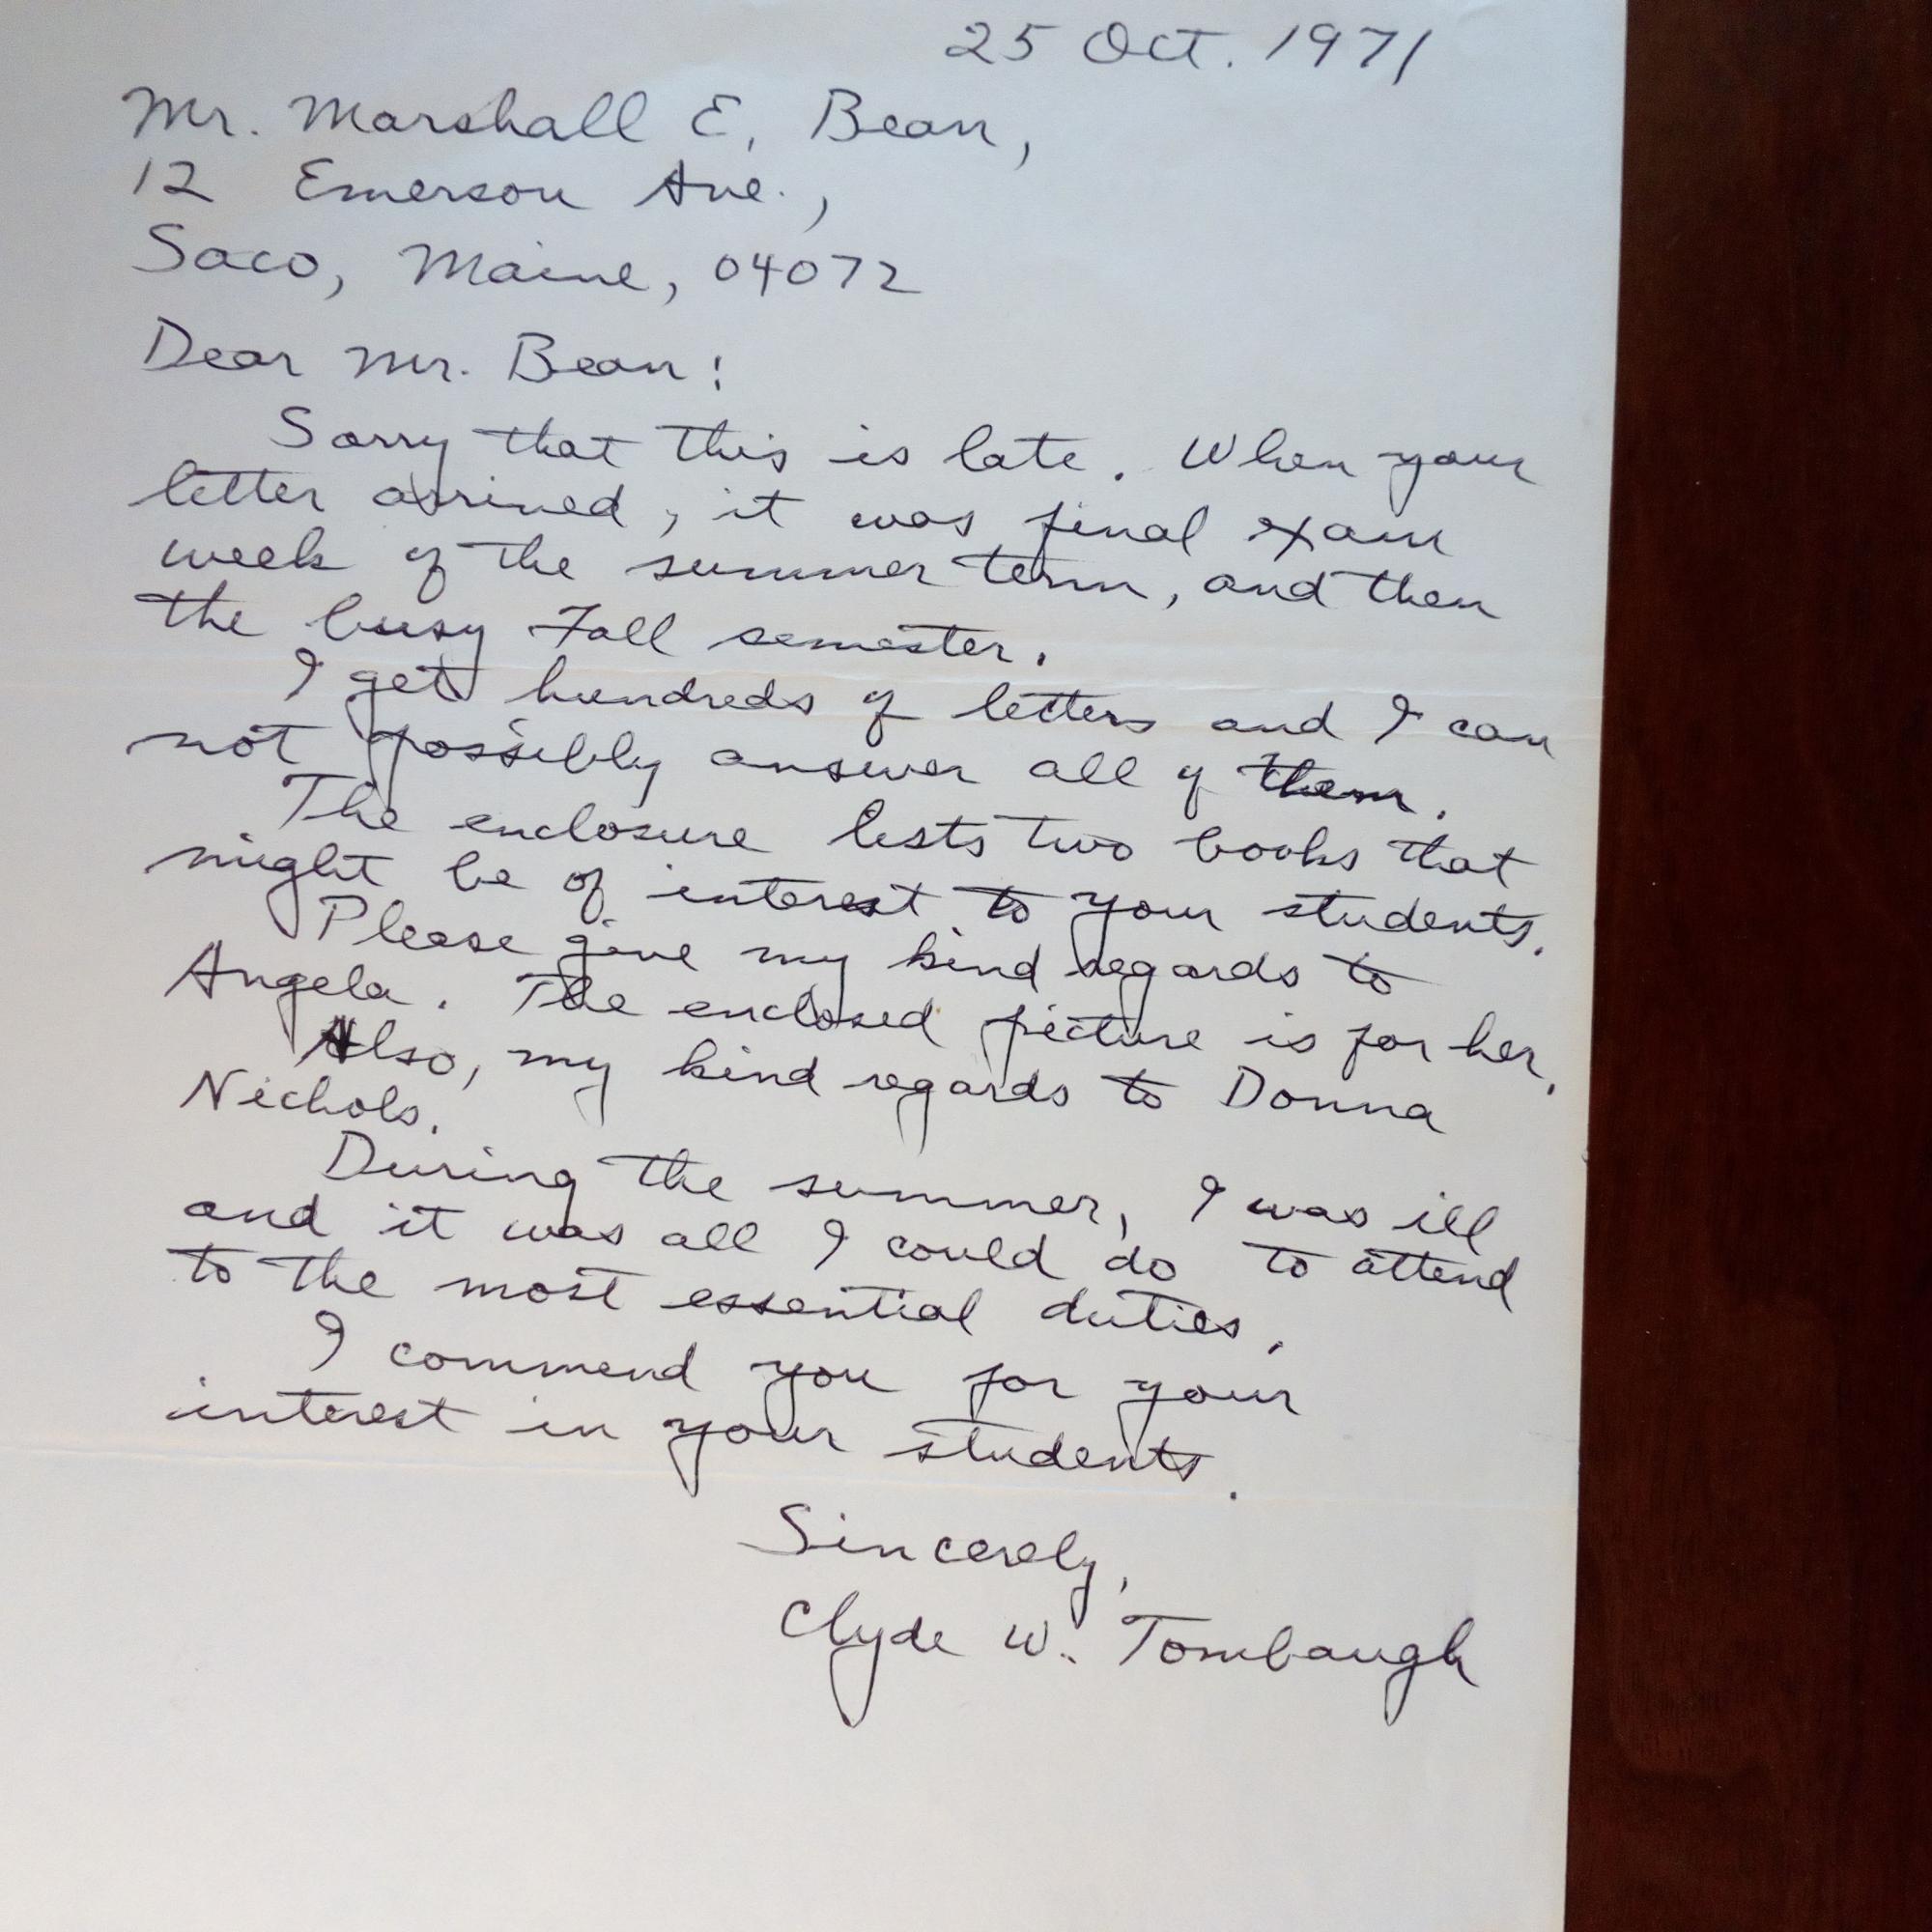 25 Oct. 1971
Mr. Marshall E. Bean,
12 Emerson Ave.,
Saco, Maine, 04072
Dear Mr. Bean:
Sorry that this is late. When your
letter arrived, it was final exam
week of the summer term, and then
the busy Fall semester.
I get hundreds of letters and I can
not possibly answer all of them.
The enclosure lists two books that
might be of interest to your students.
Please give my kind regards to
Angela. The enclosed picture is for her.
Also, my kind regards to Donna
Nichols.
During the summer, I was ill
and it was all I could do to attend
to the most essential duties.
I commend you for your
interest in your students.
Sincerely,
Clyde W. Tombaugh